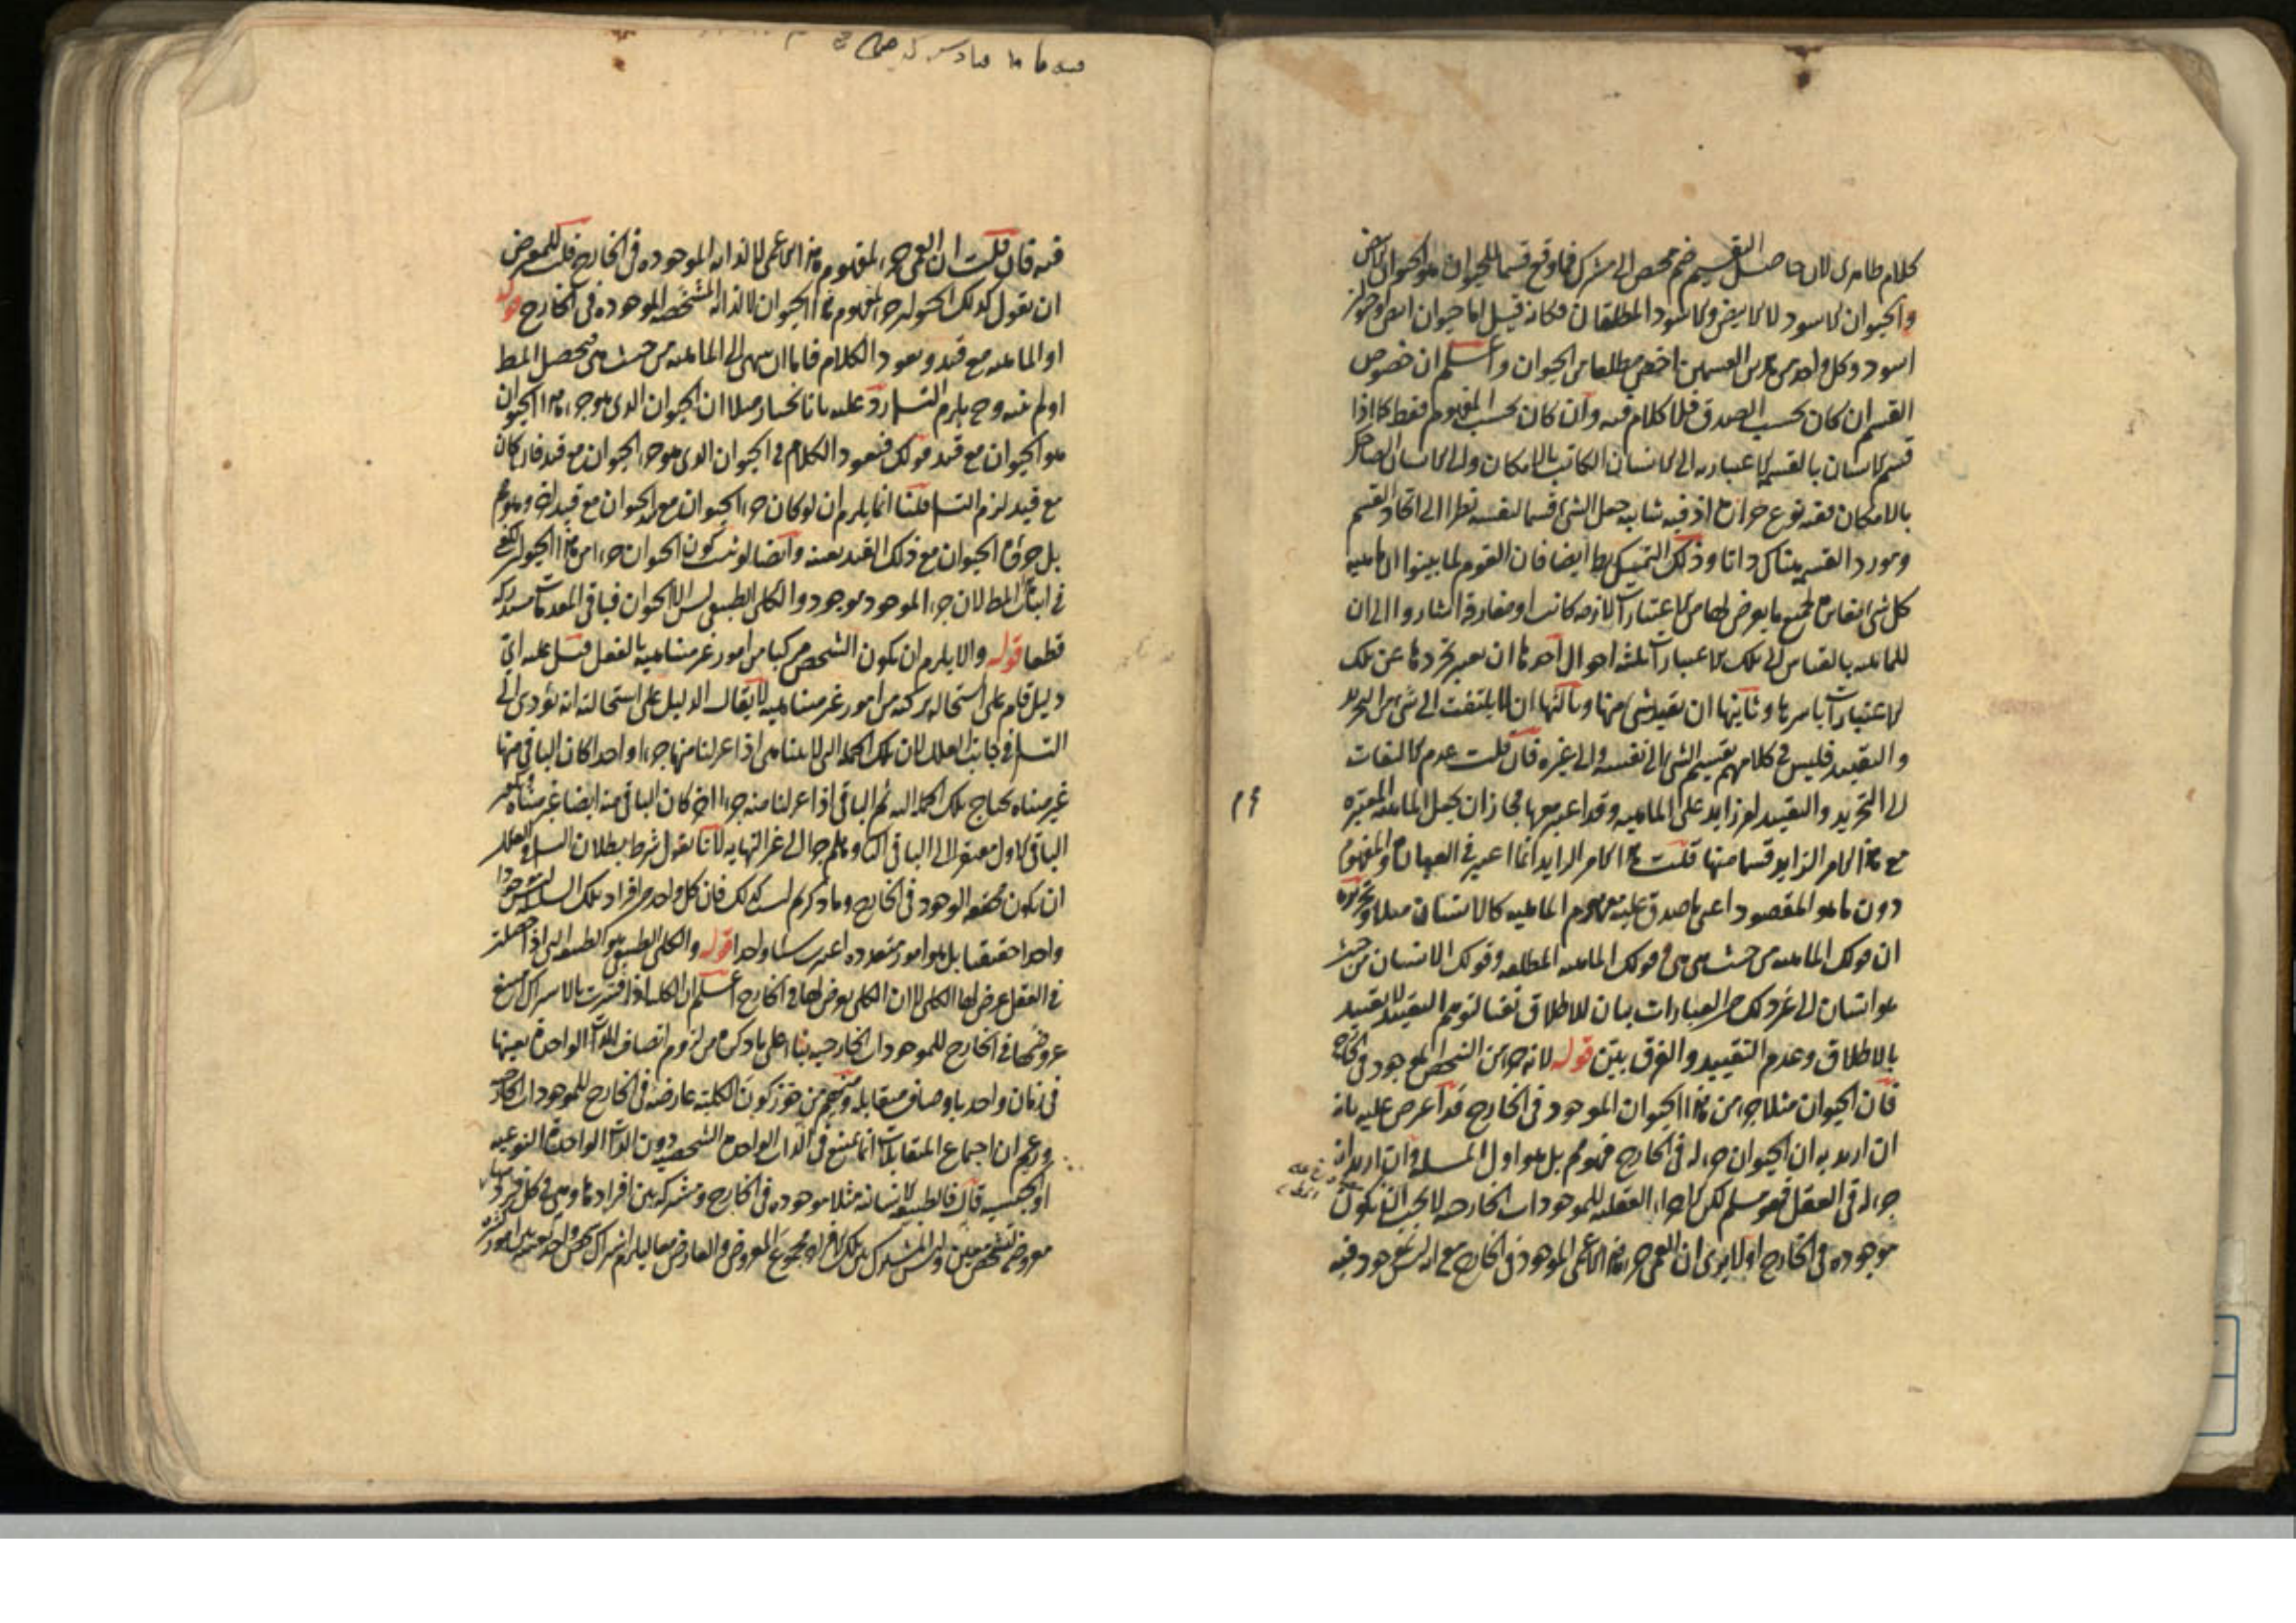 كلام ظاهرى لان حاصل التقسيم ضم مختص الى مشترك فما وقع قسما للحيوان هو الحيوان الابيض
والحيوان الاسود لا الابيض والاسود المطلقان فكانه قيل اما حيوان ابيض او حيوان
اسود وكل واحد من هذين القسمين اخص مطلقا من الحيوان واعلم ان خصوص
القسم ان كان بحسب الصدق فلا كلام فيه وان كان بحسب المفهوم فقط كما اذا
قسم الانسان بالقسمة الاعتبارية الى الانسان الكاتب بالامكان والى الانسان الضاحك
بالامكان ففيه نوع حزازة اذ فيه شايبة جعل الشئ قسما لنفسه نظرا الى اتحاد القسم
ومورد القسمة هناك ذاتا وذلك التمسك بط ايضا فان القوم لما بينوا ان ماهية
كل شئ مغايرة لجميع ما يعرض لها من الاعتبارات لازمة كانت او مفارقة اشاروا الى ان
للماهية بالقياس الى تلك الاعتبارات ثلثة احوال احدها ان يعتبر تجردها عن تلك
الاعتبارات باسرها وثانيها ان تقيد بشئ منها وثالثها ان لا يلتفت الى شئ من التجريد
والتقييد فليس في كلامهم تقسيم الشئ الى نفسه والى غيره فان قلت عدم الالتفات
الى التجريد والتقييد امر زايد على الماهية وقد اعتبر معها فجاز ان يجعل الماهية المعتبرة
مع هذا الامر الزايد قسما منها قلت هذا الامر الزايد انما اعتبر في العبارة والمفهوم
دون ما هو المقصود اعنى ما صدق عليه مفهوم الماهية كالانسان مثلا وتحريره
ان قولك الماهية من حيث هى هى وقولك الماهية المطلقة وقولك الانسان من حيث
هو انسان الى غير ذلك من العبارات بيان للاطلاق نفيا لتوهم التقييد لا تقييد
بالاطلاق وعدم التقييد والفرق بيّن قوله لانه جزء من الشخص الموجود في الخارج
فان الحيوان مثلا جزء من هذا الحيوان الموجود في الخارج قد اعترض عليه بانه
ان اريد به ان الحيوان جزء له في الخارج فهو مم بل هو اول المسئلة وان اريد انه
جزء له في العقل فهو مسلم لكن الاجزاء العقلية للموجودات الخارجية لا يجب ان تكون
موجودة في الخارج اولا يرى ان العمى جزء هذا الاعمى الموجود في الخارج مع انه ليس بموجود فيه
فيه فان قلت ان العمى جزء لمفهوم هذا الاعمى لا لذاته الموجودة في الخارج قلت للمعترض
ان يقول كذلك الحيوان جزء لمفهوم هذا الحيوان لا لذاته المشخصة الموجودة في الخارج قوله
او الماهية مع قيد ويعود الكلام فاما ان ينتهى الى الماهية من حيث هى فيحصل المط
او لم ينته وح يلزم التسلسل رد عليه بانا نختار مثلا ان الحيوان الذى هو جزء هذا الحيوان
هو الحيوان مع قيد قولك فنعود الكلام في الحيوان الذى هو جزء الحيوان مع قيد فان كان
مع قيد لزم التسلسل قلنا انما يلزم ان لو كان جزء الحيوان مع هذا الحيوان مع قيد اخر وهو مم
بل جزؤه الحيوان مع ذلك القيد بعينه وايضا لو ثبت كون الحيوان جزءا من هذا الحيوان لكفى
في اثبات المط لان جزء الموجود موجود والكلى الطبيعى ليس الا الحيوان فباقى المقدمات مستدركة
قطعا قوله والا يلزم ان يكون الشخص مركبا من امور غير متناهية بالفعل قيل عليه اى
دليل قام على استحالة تركبه من امور غير متناهية لا يقال الدليل على استحالته انه يؤدى الى
التسلسل في جانب العلل لان تلك الجملة التى لا تتناهى اذا عزلنا منها جزءا واحدا كان الباقى منها
غير متناه يحتاج تلك الجملة اليه ثم الباقى اذا عزلنا منه جزءا اخر كان الباقى منه ايضا غير متناه
الباقى الاول مفتقر الى الباقى الثانى وهلم جرا الى غير النهاية لانا نقول شرط بطلان التسلسل في العلل
ان يكون محققة الوجود في الخارج وما ذكرتم ليس كذلك فان كل واحد من افراد تلك السلسلة ليس موجودا
واحدا حقيقيا بل هو امور متعددة اعتبرت شيئا واحدا قوله والكلى الطبيعى هو الطبيعة التى اذا حصلت
في العقل عرض لها الكلى لا ان الكلى يعرض لها في الخارج اعلم ان الكلية اذا فسرت بالاشتراك امتنع
عروضها في الخارج للموجودات الخارجية بناء على ما ذكر من لزوم اتصاف الذات الواحدة بعينها
في زمان واحد باوصاف متقابلة ومنهم من جوز كون الكلية عارضة في الخارج للموجودات الخارجية
وزعم ان اجتماع المتقابلات انما يمتنع في الذات الواحدة الشخصية دون الذات الواحدة النوعية
او الجنسية قال فالطبيعة الانسانية مثلا موجودة في الخارج ومشتركة بين افرادها وهى في كل فرد
معروضة لتشخص معين وليس المشترك بين تلك الافراد مجموع المعروض والعارض معا ليلزم اشتراك شخص واحد بعينه بين امور